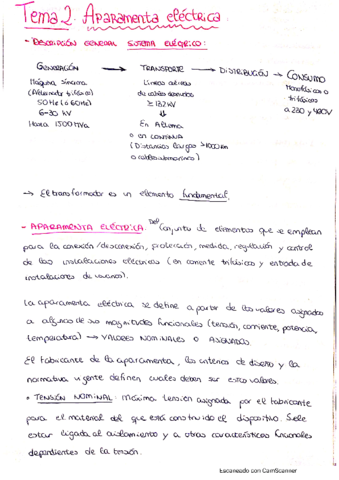 Tema 2. Aparamenta eléctrica.
- DESCRIPCIÓN GENERAL SISTEMA ELÉCTRICO:
GENERACIÓN → TRANSPORTE → DISTRIBUCIÓN → CONSUMO
Máquina síncrona
(Alternador trifásico)
50 Hz (ó 60Hz)
6-30 kV
Hasta 1500 MVA
Líneas aéreas
de cables desnudos
≥ 132 kV
⇓
En Alterna
o en CONTINUA
(Distancias largas >1000 km
o cables submarinos)
Monofásicos o
trifásicos
a 230 y 400V
→ El transformador es un elemento fundamental.
- APARAMENTA ELÉCTRICA: Def Conjunto de elementos que se emplean
para la conexión/desconexión, protección, medida, regulación y control
de las instalaciones eléctricas (en corriente trifásica y entrada de
instalaciones de usuarios).
La aparamenta eléctrica se define a partir de los valores asignados
a algunas de sus magnitudes funcionales (tensión, corriente, potencia,
temperatura) → VALORES NOMINALES O ASIGNADOS
El fabricante de la aparamenta, los criterios de diseño y la
normativa vigente definen cuales deben ser estos valores.
• TENSIÓN NOMINAL: Máxima tensión asignada por el fabricante
para el material del que está construido el dispositivo. Suele
estar ligada al aislamiento y a otras características funcionales
dependientes de la tensión.
Escaneado con CamScanner